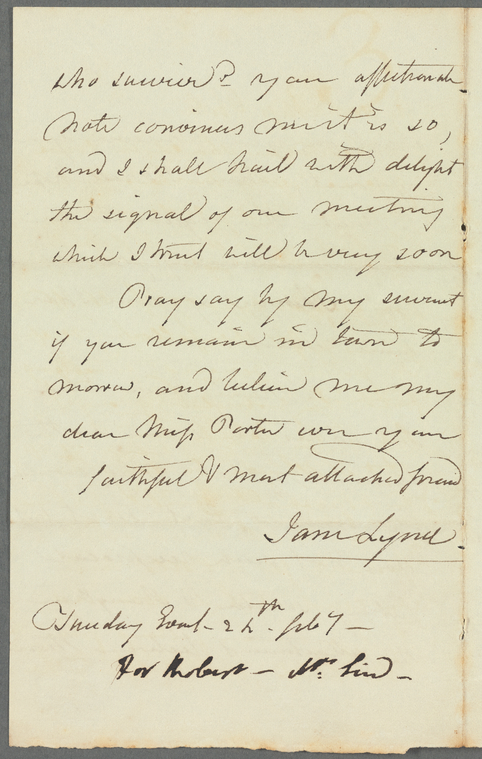 who survive? your affectionate
Note convinces me it is so,
and I shall hail with delight
the signal of our meeting
which I trust will be very soon
Pray say by my servant
if you remain in town to
morrow, and believe me my
dear Miss Porter ever your
faithful & most attached friend
Jane
Tuesday 24th
For Robert - Mr.